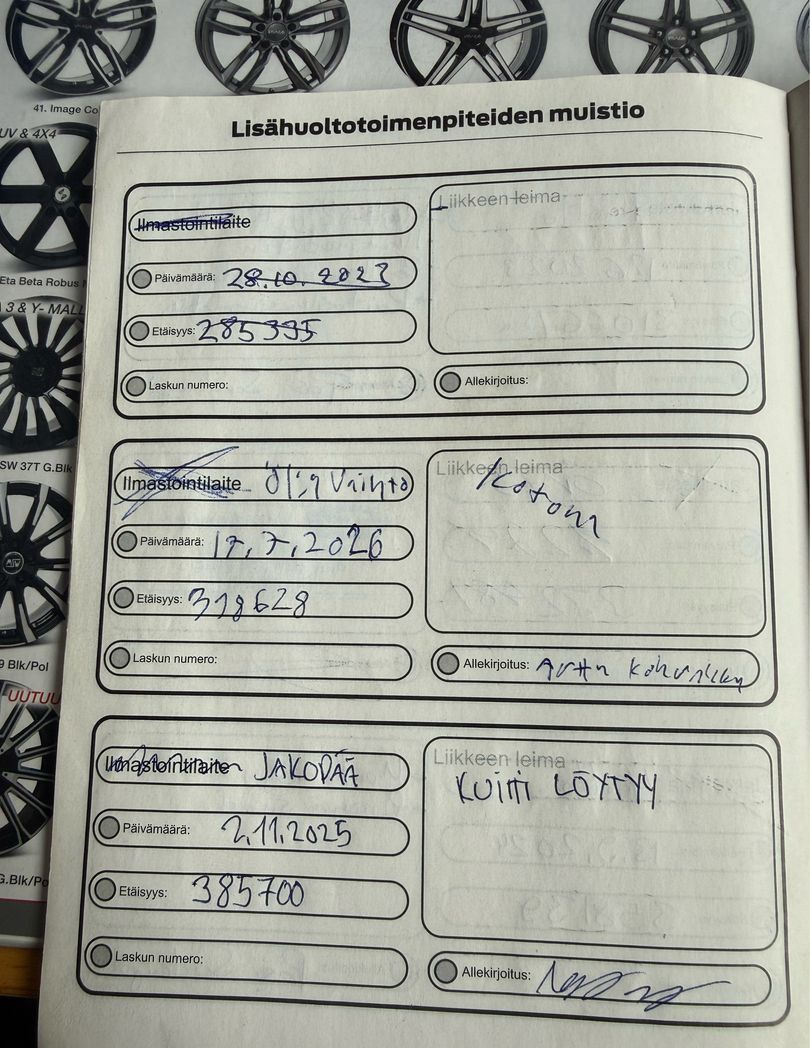 41. Image Co
UV & 4X4
Eta Beta Robus
3 & Y- MALL
SW 37T G.Blk
9 Blk/Pol
UUTUU
G.Blk/Po
Lisähuoltotoimenpiteiden muistio
Ilmastointilaite
Päivämäärä: 28.10.2023
Etäisyys: 285395
Laskun numero:
Liikkeen leima
Allekirjoitus:
Ilmastointilaite Öljy Vaihto
Päivämäärä: 17.7.2026
Etäisyys: 318628
Laskun numero:
Liikkeen leima
Kotona
Allekirjoitus: Arttu
Ilmastointilaite JAKOPÄÄ
Päivämäärä: 2.11.2025
Etäisyys: 385700
Laskun numero:
Liikkeen leima
KUITTI LÖYTYY
Allekirjoitus: